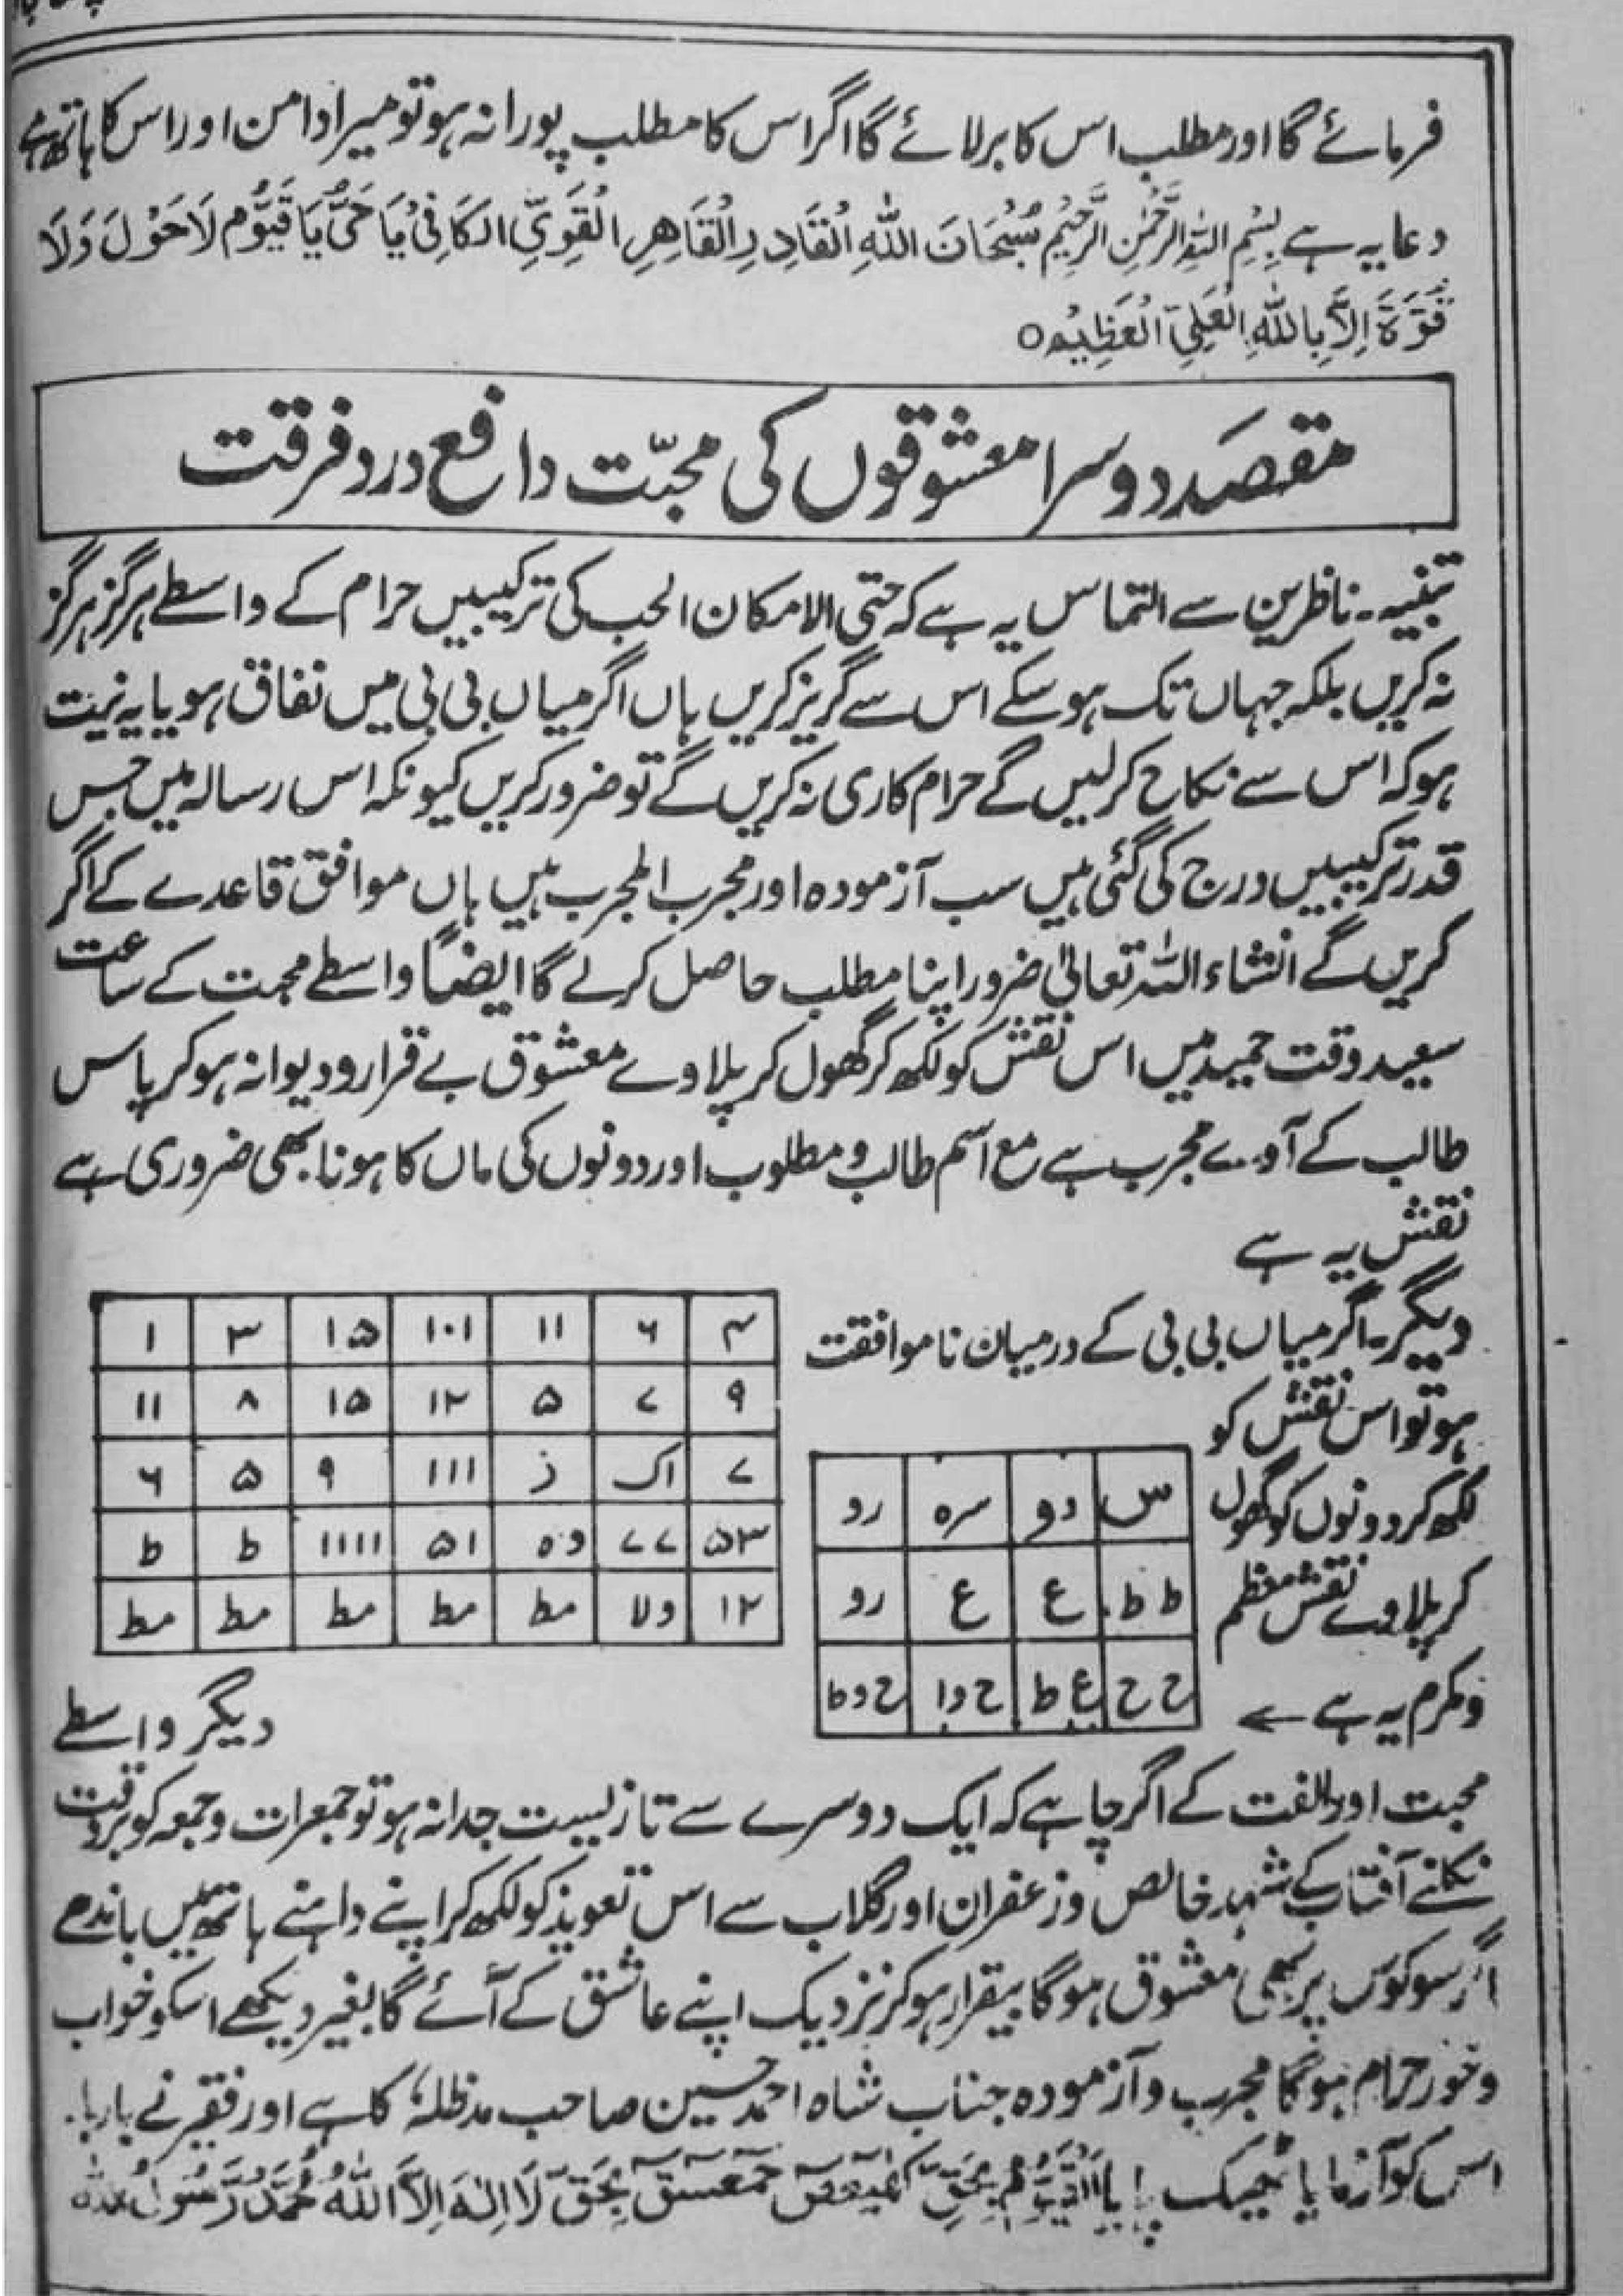 فرمائے گا اور مطلب اس کا برلائے گا اگر اس کا مطلب پورا نہ ہو تو میرا دامن اور اس کا ہاتھ ہے
دعا یہ ہے بِسْمِ اللّٰہِ الرَّحْمٰنِ الرَّحِیْمِ سُبْحَانَ اللّٰہِ الْقَادِرِ الْقَاہِرِ الْقَوِیِّ الْکَافِیْ یَا حَیُّ یَا قَیُّوْمُ لَا حَوْلَ وَلَا
قُوَّۃَ اِلَّا بِاللّٰہِ الْعَلِیِّ الْعَظِیْمِ ○
مقصد دوسرا معشوقوں کی محبّت دافع درد فرقت
تنبیہ۔ ناظرین سے التماس یہ ہے کہ حتی الامکان الحب کی ترکیبیں حرام کے واسطے ہرگز ہرگز
نہ کریں بلکہ جہاں تک ہو سکے اس سے گریز کریں ہاں اگر میاں بی بی میں نفاق ہو یا یہ نیت
ہو کہ اس سے نکاح کر لیں گے حرام کاری نہ کریں گے تو ضرور کریں کیونکہ اس رسالہ میں جس
قدر ترکیبیں درج کی گئی ہیں سب آزمودہ اور مجرب المجرب ہیں ہاں موافق قاعدے کے اگر
کریں گے انشاء اللہ تعالیٰ ضرور اپنا مطلب حاصل کرلے گا ایضاً واسطے محبت کے ساعت
سعید وقت حمید میں اس نقش کو لکھ کر گھول کر پلاوے معشوق بے قرار و دیوانہ ہو کر پاس
طالب کے آوے مجرب ہے مع اسم طالب و مطلوب اور دونوں کی ماں کا ہونا بھی ضروری ہے
نقش یہ ہے
دیگر۔ اگر میاں بی بی کے درمیان ناموافقت
ہو تو اس نقش کو
لکھ کر دونوں کو گھول
کر پلاوے نقش معظم
و مکرم یہ ہے ←
س دو سرہ رو
ط ط ع ع رو
ح ح ع ط ح وا ح وط
۴ ۶ ۱۱ ۱۰۱ ۱۵ ۳ ۱
۹ ۷ ۵ ۱۲ ۱۵ ۸ ۱۱
۷ اک ز ۱۱۱ ۹ ۵ ۶
۵۳ ۷۷ وہ ۵۱ ۱۱۱۱ ط ط
۱۲ ولا مط مط مط مط مط
دیگر واسطے
محبت اور الفت کے اگر چاہے کہ ایک دوسرے سے تا زیست جدا نہ ہو تو جمعرات و جمعہ کو بروقت
نکلنے آفتاب کے شہد خالص و زعفران اور گلاب سے اس تعویذ کو لکھ کر اپنے داہنے ہاتھ میں باندھے
اگر سو کوس پر بھی معشوق ہوگا بیقرار ہو کر نزدیک اپنے عاشق کے آئے گا بغیر دیکھے اسکو خواب
و خور حرام ہوگا مجرب و آزمودہ جناب شاہ احمد حسین صاحب مدظلہٗ کا ہے اور فقیر نے بارہا
اس کو آزمایا ٹھیک پایا بِحَقِّ کٓہٰیٰعٓصٓ حٰمٓعٓسٓقٓ بِحَقِّ لَا اِلٰہَ اِلَّا اللّٰہُ مُحَمَّدٌ رَّسُوْلُ اللّٰہِ